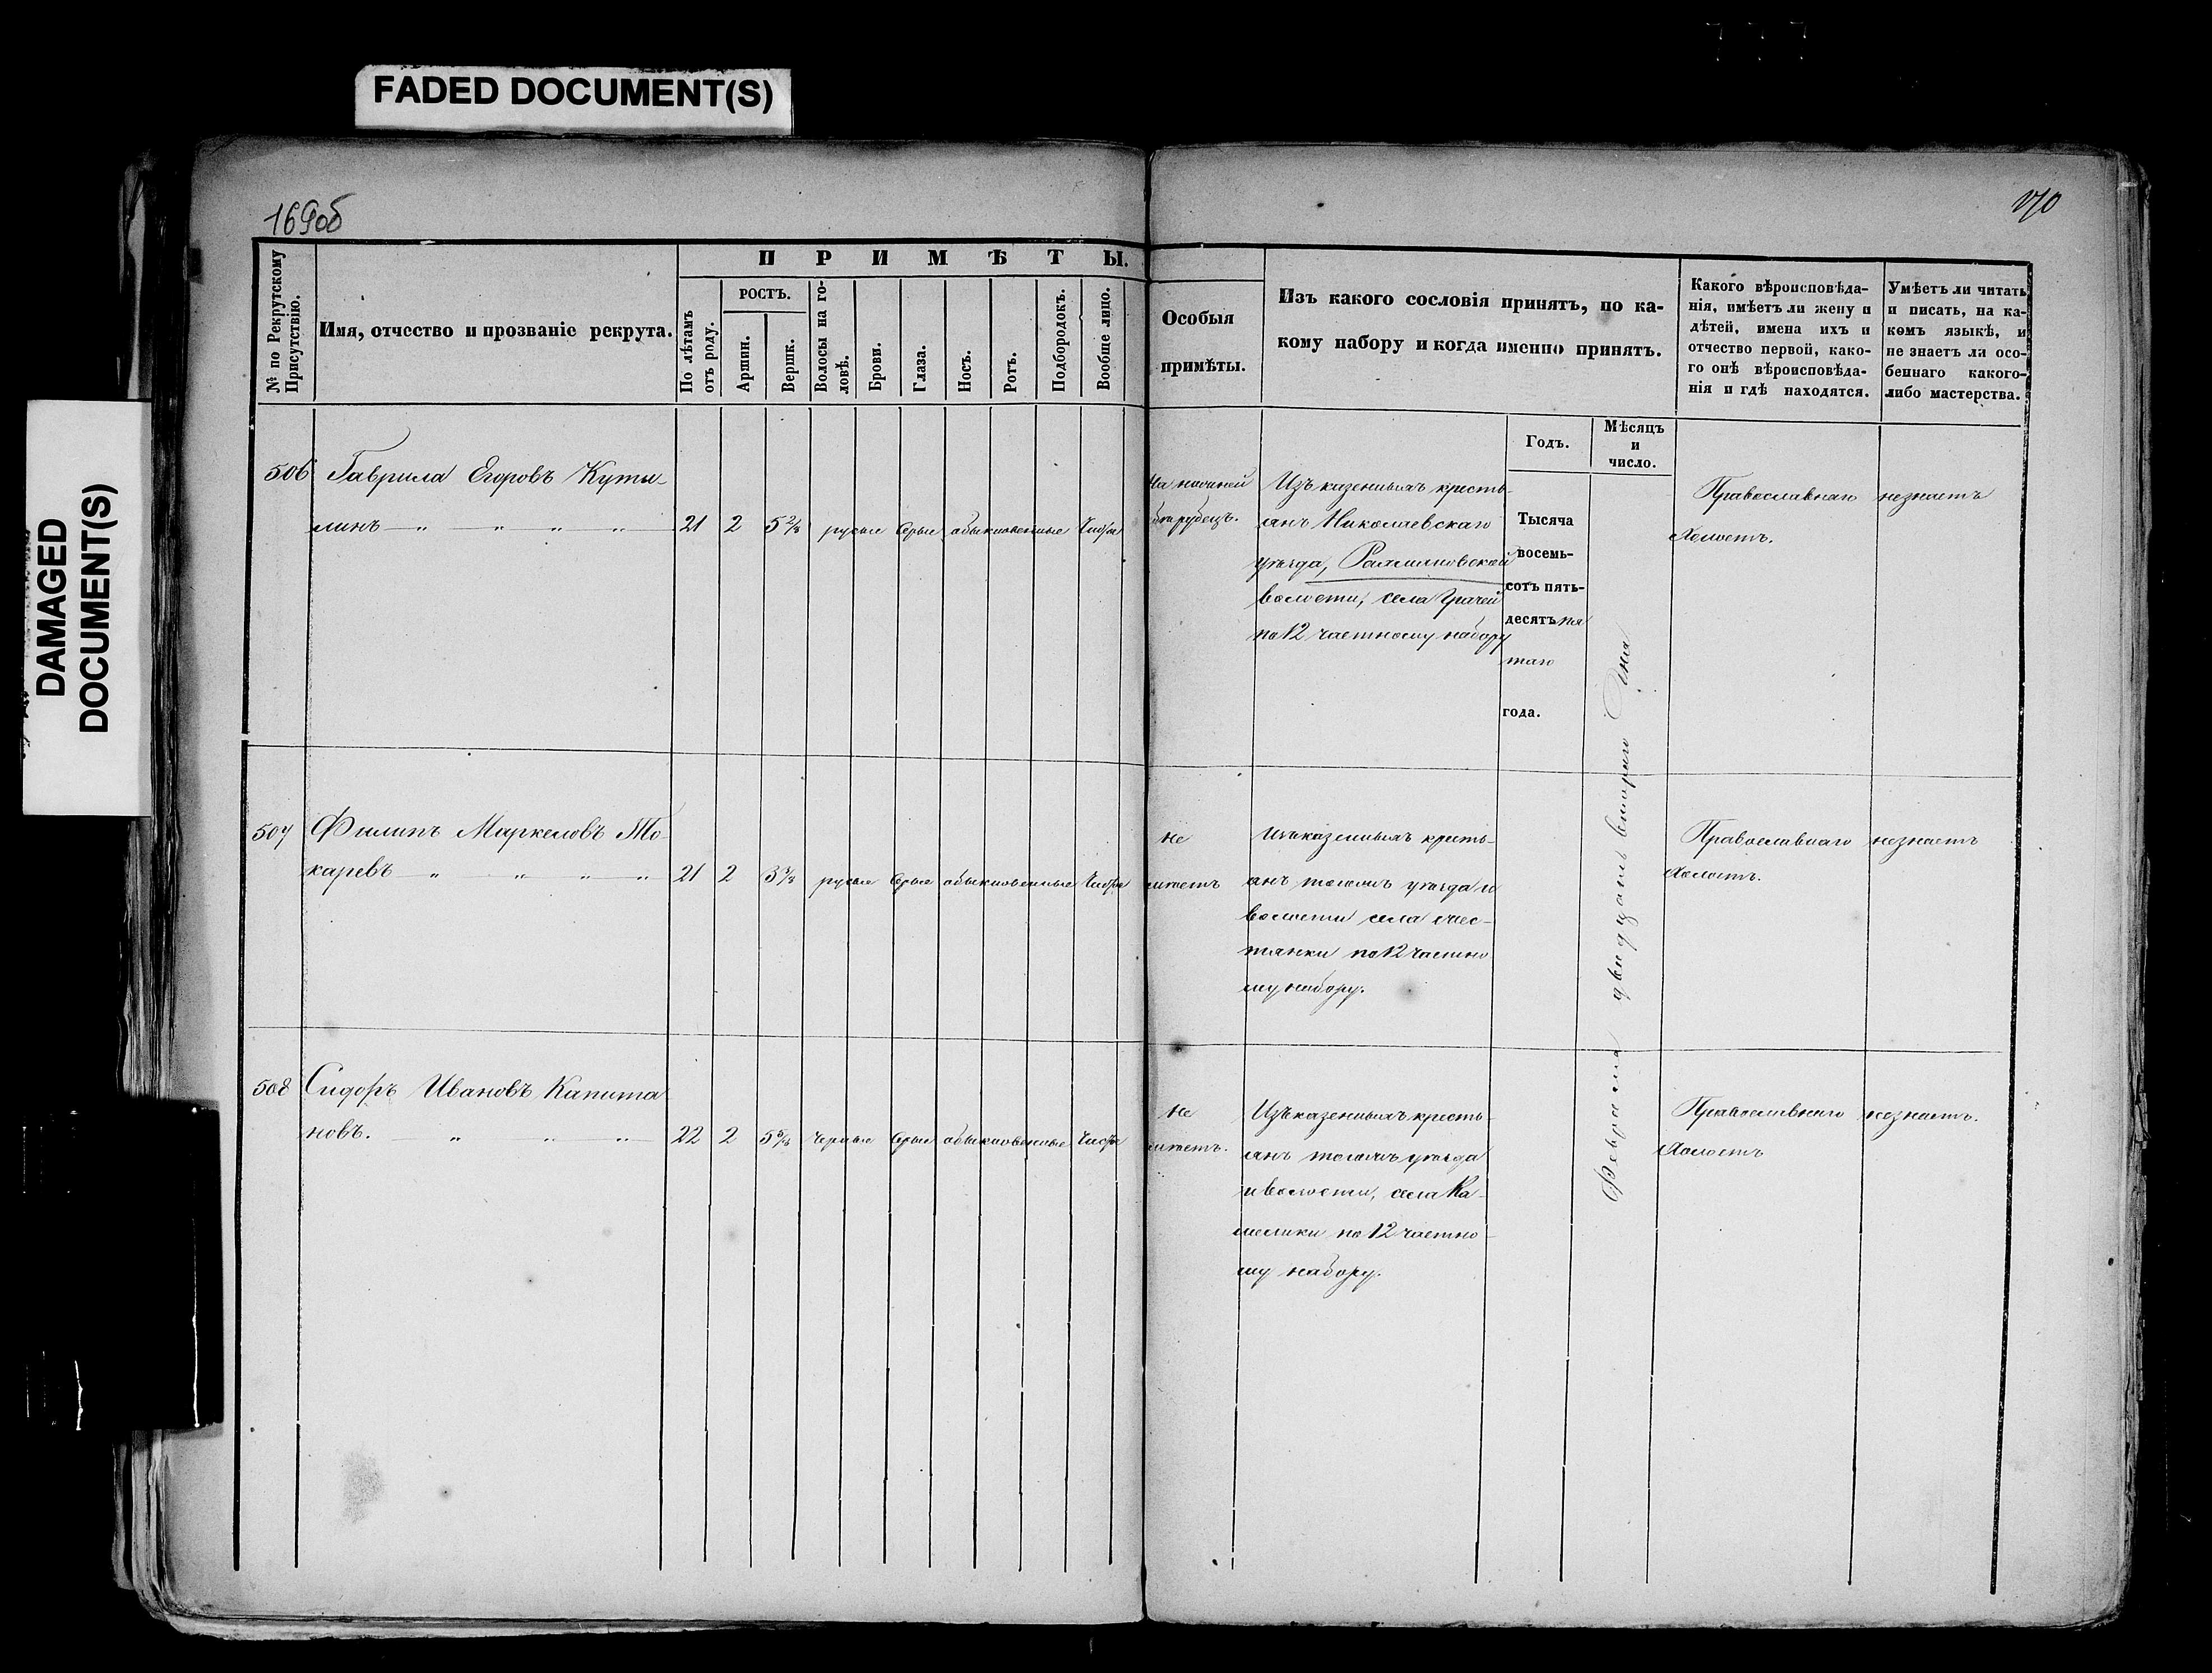 FADED DOCUMENT(S)
DAMAGED
DOCUMENT(S)
169об
170
№ по Рекрутскому
Присутствію.
Имя, отчество и прозваніе рекрута.
ПРИМѢТЫ.
По лѣтамъ
отъ роду.
РОСТЪ.
Аршин.
Вершк.
Волосы на го-
ловѣ.
Брови.
Глаза.
Носъ.
Ротъ.
Подбородокъ.
Вообще лицо.
Особыя
примѣты.
Изъ какого сословія принятъ, по ка-
кому набору и когда именно принятъ.
Годъ.
Мѣсяцъ
и
число.
Какого вѣроисповѣда-
нія, имѣетъ ли жену и
дѣтей, имена ихъ и
отчество первой, како-
го онѣ вѣроисповѣда-
нія и гдѣ находятся.
Умѣетъ ли читать
и писать, на ка-
комъ языкѣ, и
не знаетъ ли осо-
беннаго какого-
либо мастерства.
506 Гаврила Егоровъ Куты-
линъ — „ — „ — „ — „ — 21 2 5 2/8 русые Серые обыкновенные Чисто
На
рубецъ.
Изъ казенныхъ кресть-
янъ Николаевскаго
уѣзда,
волости, села Грачей
по 12 частному набору
Тысяча
восемь-
сотъ пять-
десятъ пя
таго
года.
Февраля двадцать втораго Дня
Православнаго
Холостъ.
незнаетъ
507 Филипъ Маркеловъ То-
каревъ „ „ „ „ 21 2 3 русые Серые обыкновенные Чисто
не
имѣетъ
Изъ казенныхъ кресть-
янъ тогожъ уѣзда и
волости села Мос-
тянки по 12 частно
му набору.
Православнаго
Холостъ.
незнаетъ
508 Сидоръ Ивановъ Капита-
новъ. — „ „ „ 22 2 5 5/8 Черные Серые обыкновенные Чисто
не
имѣетъ.
Изъ казенныхъ кресть-
янъ тогожъ уѣзда
и волости, села Ка-
мелики по 12 частно-
му набору.
Православнаго
Холостъ
незнаетъ.